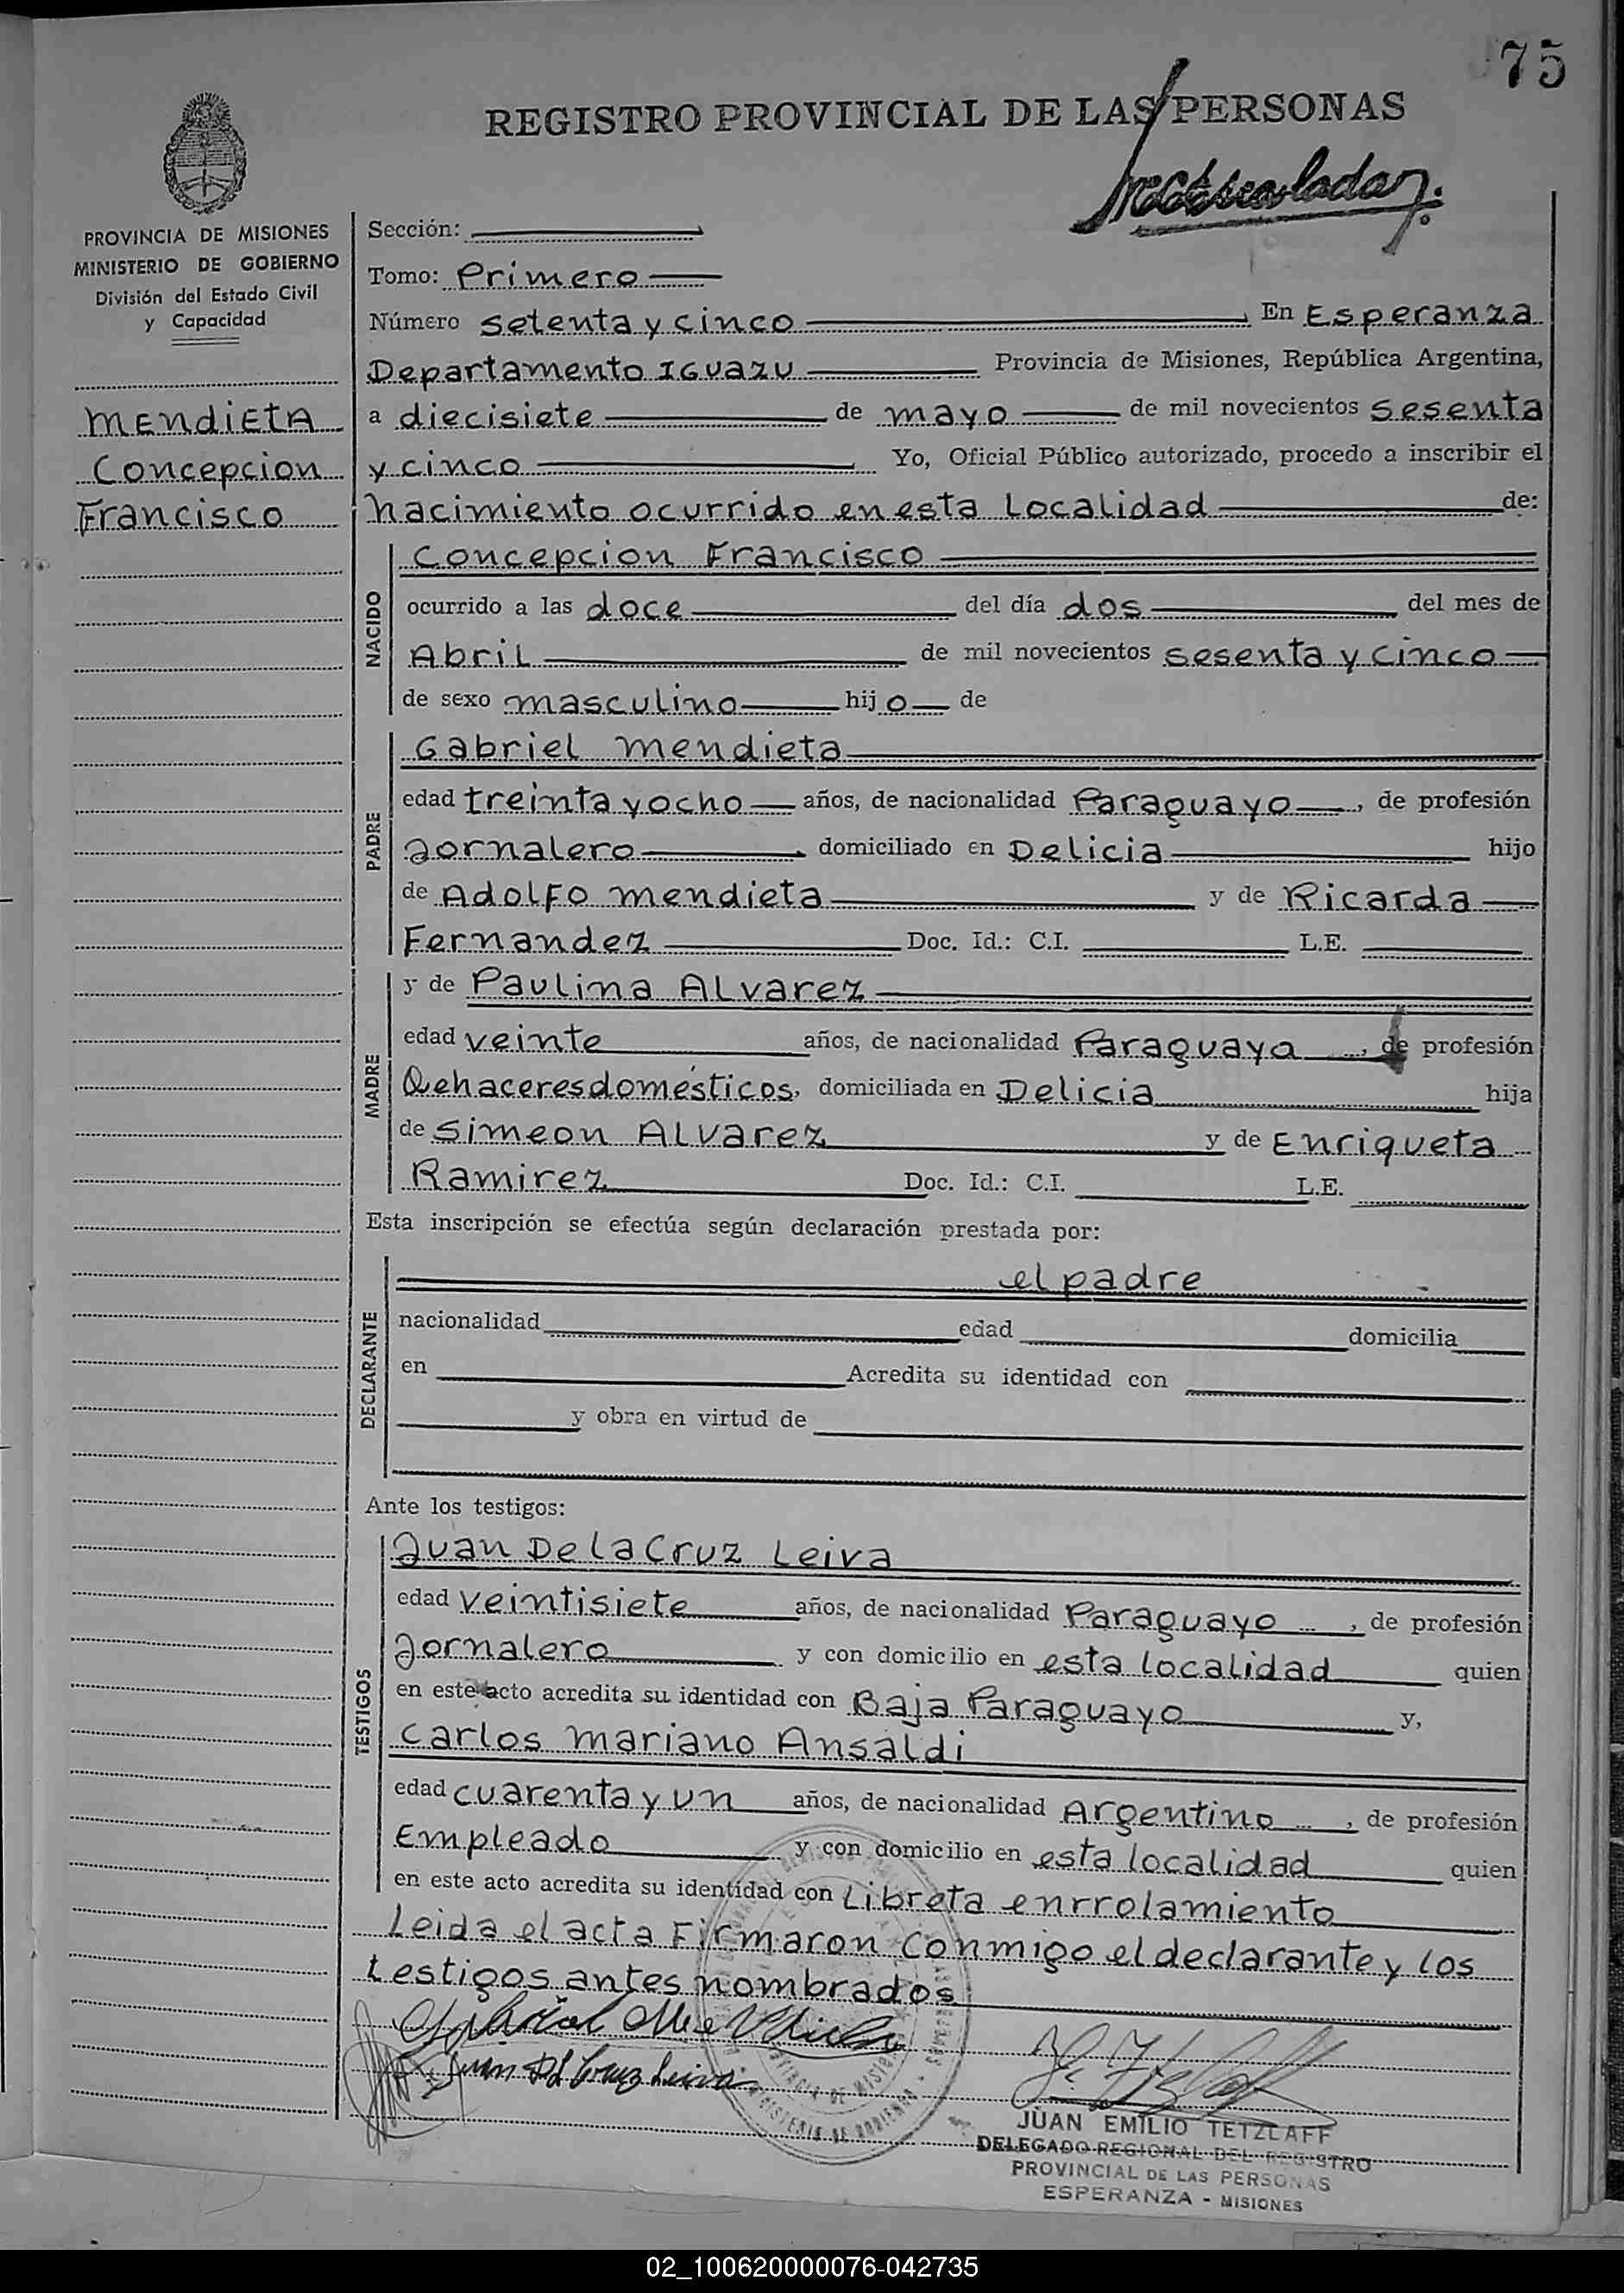 75
REGISTRO PROVINCIAL DE LAS PERSONAS
PROVINCIA DE MISIONES
MINISTERIO DE GOBIERNO
División del Estado Civil
y Capacidad
MENDIETA
Concepcion
Francisco
Sección:
Tomo: Primero
Número setenta y cinco En Esperanza
Departamento IGUAZU Provincia de Misiones, República Argentina,
a diecisiete de mayo de mil novecientos sesenta
y cinco Yo, Oficial Público autorizado, procedo a inscribir el
nacimiento ocurrido en esta Localidad de:
NACIDO
Concepcion Francisco
ocurrido a las doce del día dos del mes de
Abril de mil novecientos sesenta y cinco
de sexo masculino hijo de
PADRE
Gabriel mendieta
edad treinta y ocho años, de nacionalidad Paraguayo, de profesión
Jornalero domiciliado en Delicia hijo
de Adolfo mendieta y de Ricarda
Fernandez Doc. Id.: C.I. L.E.
MADRE
y de Paulina Alvarez
edad veinte años, de nacionalidad Paraguaya, de profesión
Qehaceres domésticos, domiciliada en Delicia hija
de Simeon Alvarez y de Enriqueta
Ramirez Doc. Id.: C.I. L.E.
Esta inscripción se efectúa según declaración prestada por:
DECLARANTE
el padre
nacionalidad edad domicilia
en Acredita su identidad con
y obra en virtud de
Ante los testigos:
TESTIGOS
Juan De la Cruz Leiva
edad veintisiete años, de nacionalidad Paraguayo, de profesión
Jornalero y con domicilio en esta localidad quien
en este acto acredita su identidad con Baja Paraguayo y,
Carlos mariano Ansaldi
edad cuarenta y un años, de nacionalidad Argentino, de profesión
Empleado y con domicilio en esta localidad quien
en este acto acredita su identidad con Libreta enrrolamiento
Leida el acta Firmaron conmigo el declarante y los
testigos antes nombrados
Juan D L Cruz Leiva
JUAN EMILIO TETZLAFF
DELEGADO REGIONAL DEL REGISTRO
PROVINCIAL DE LAS PERSONAS
ESPERANZA - MISIONES
02_100620000076-042735